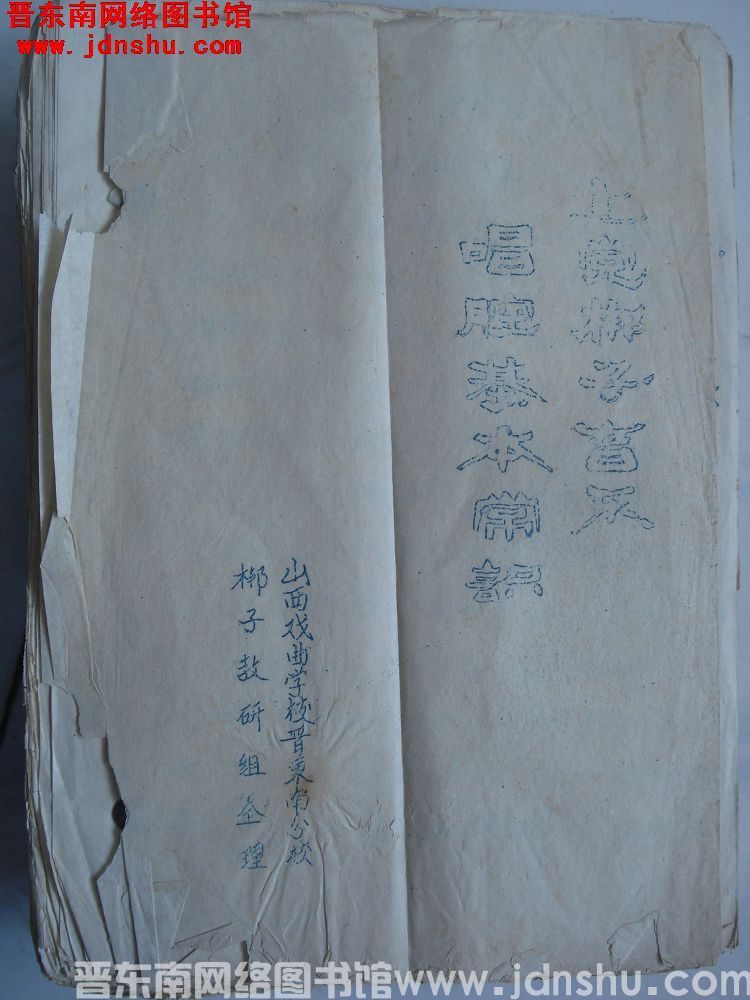 晋东南网络图书馆
www.jdnshu.com
上党梆子音乐
唱腔基本常识
山西戏曲学校晋东南分校
梆子教研组整理
晋东南网络图书馆www.jdnshu.com